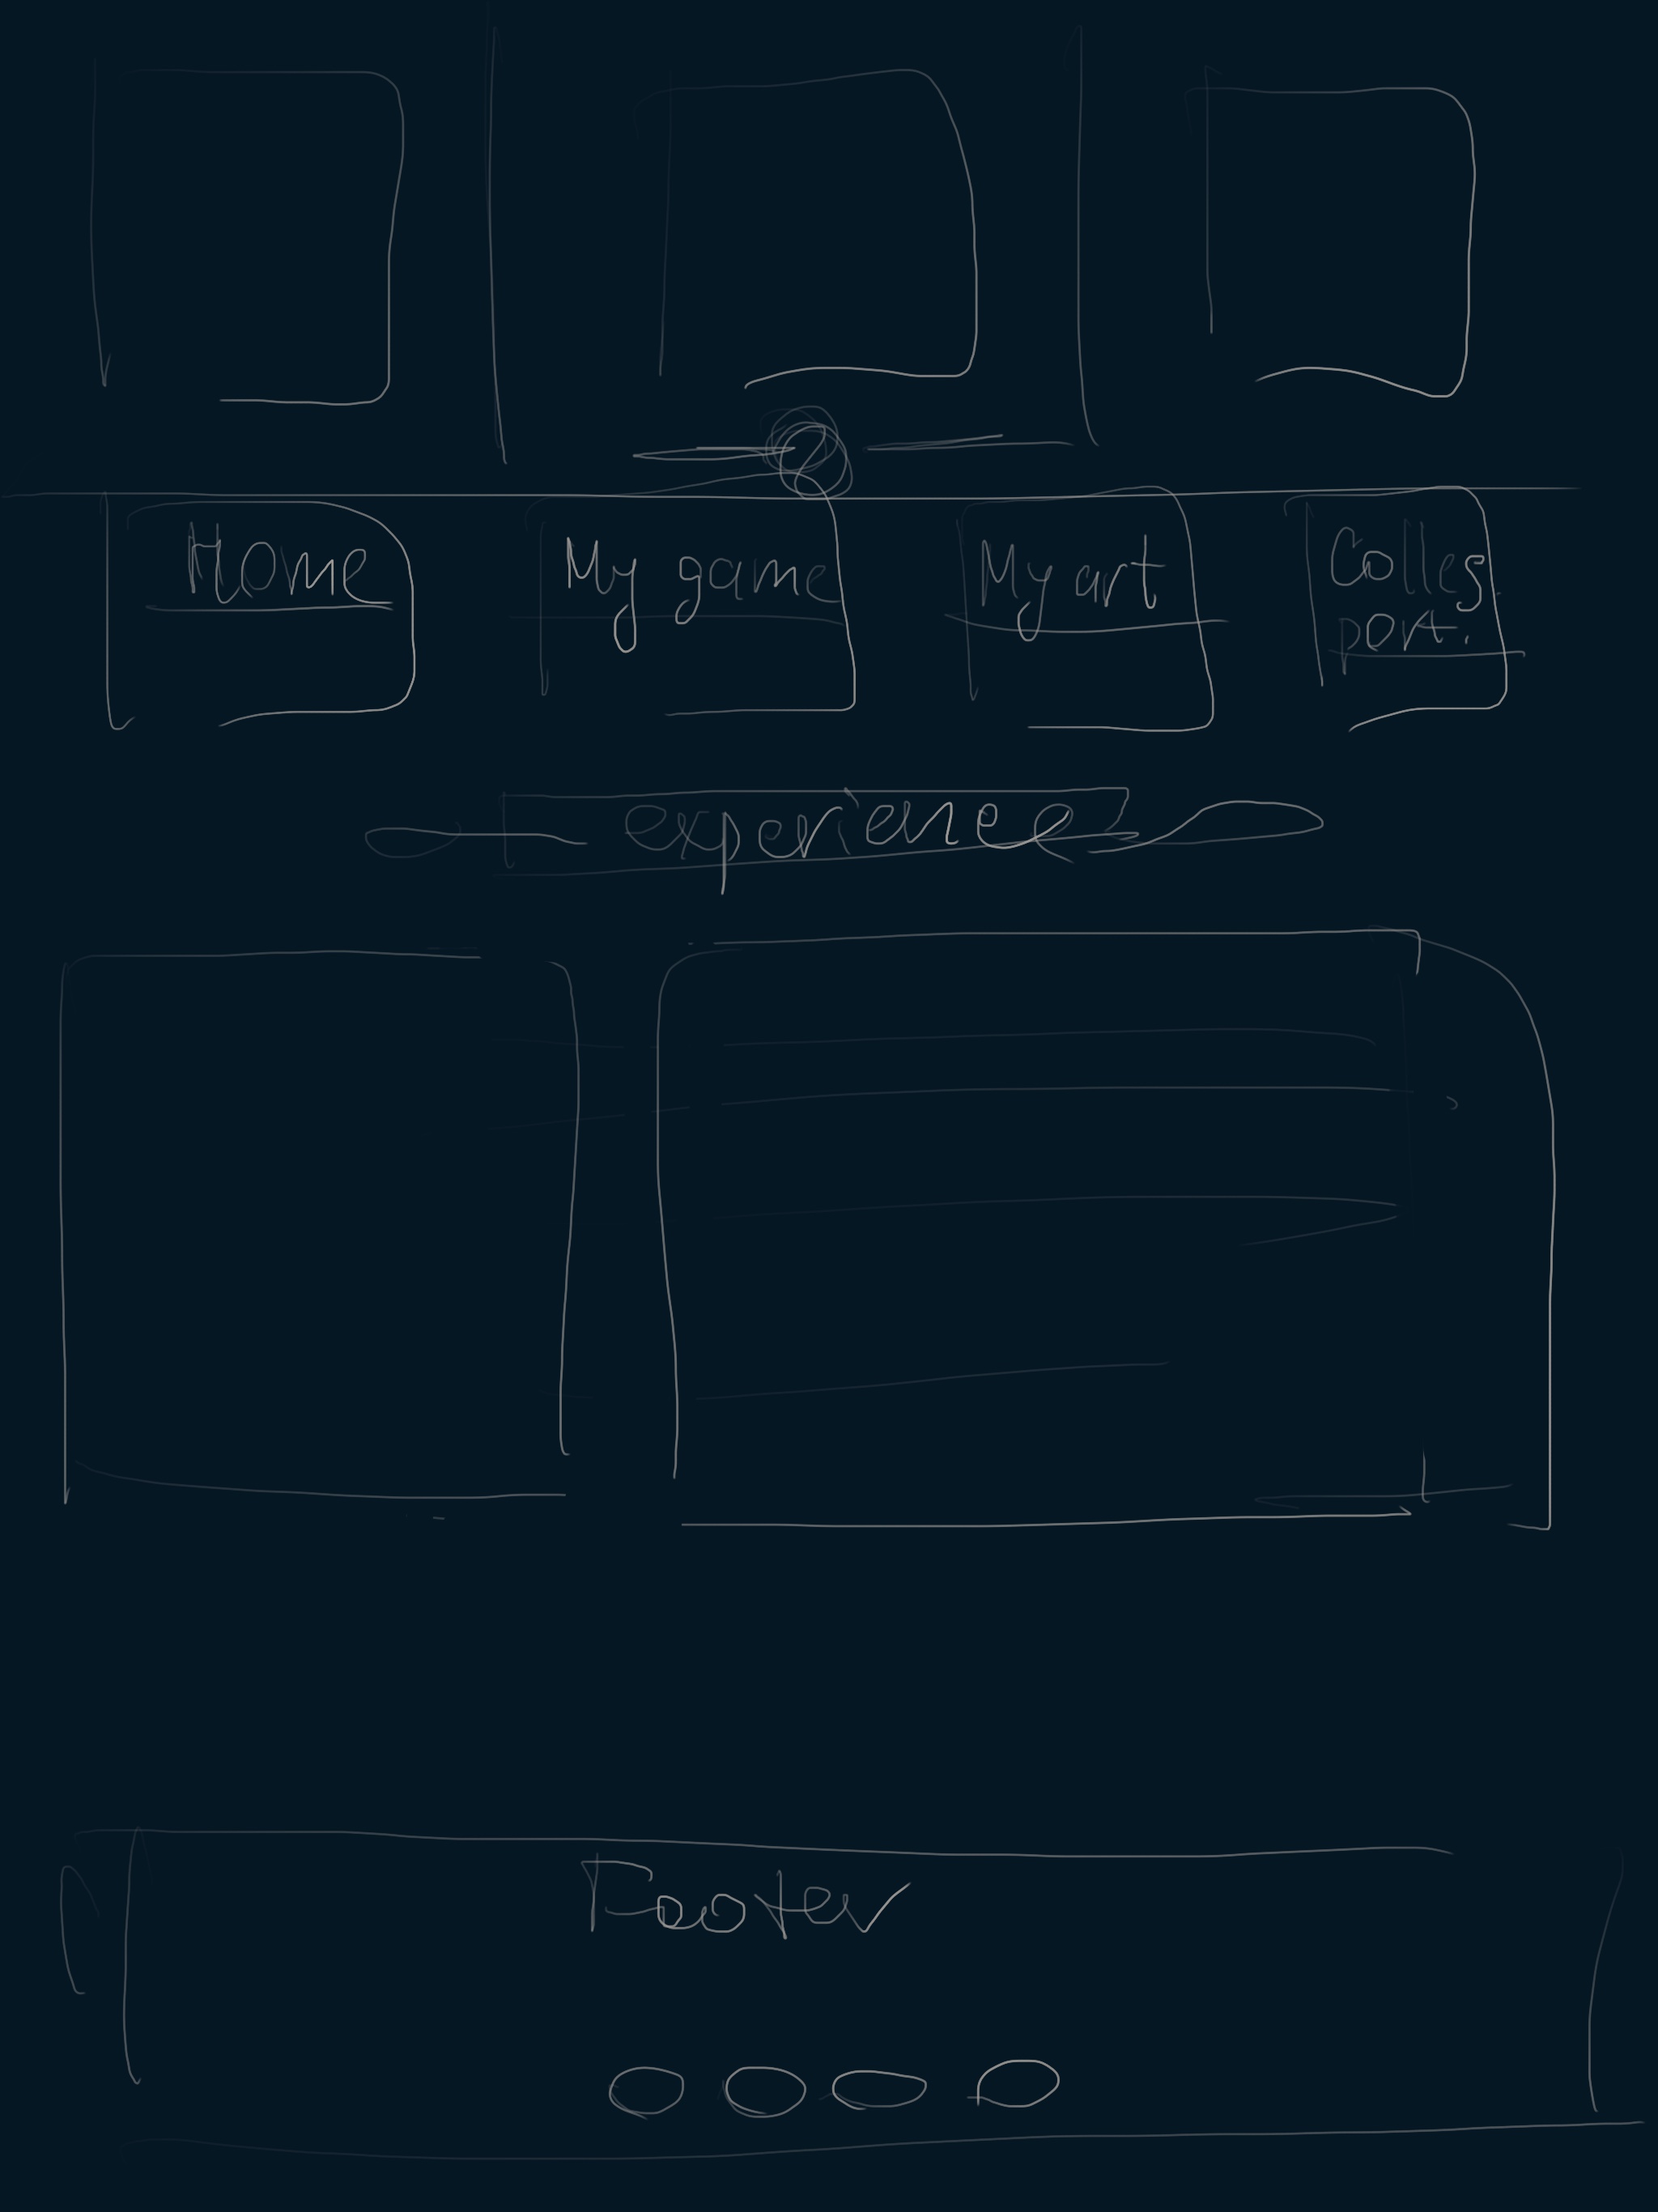 Home
My game
My art
Colleg.
port.
experience
Footer